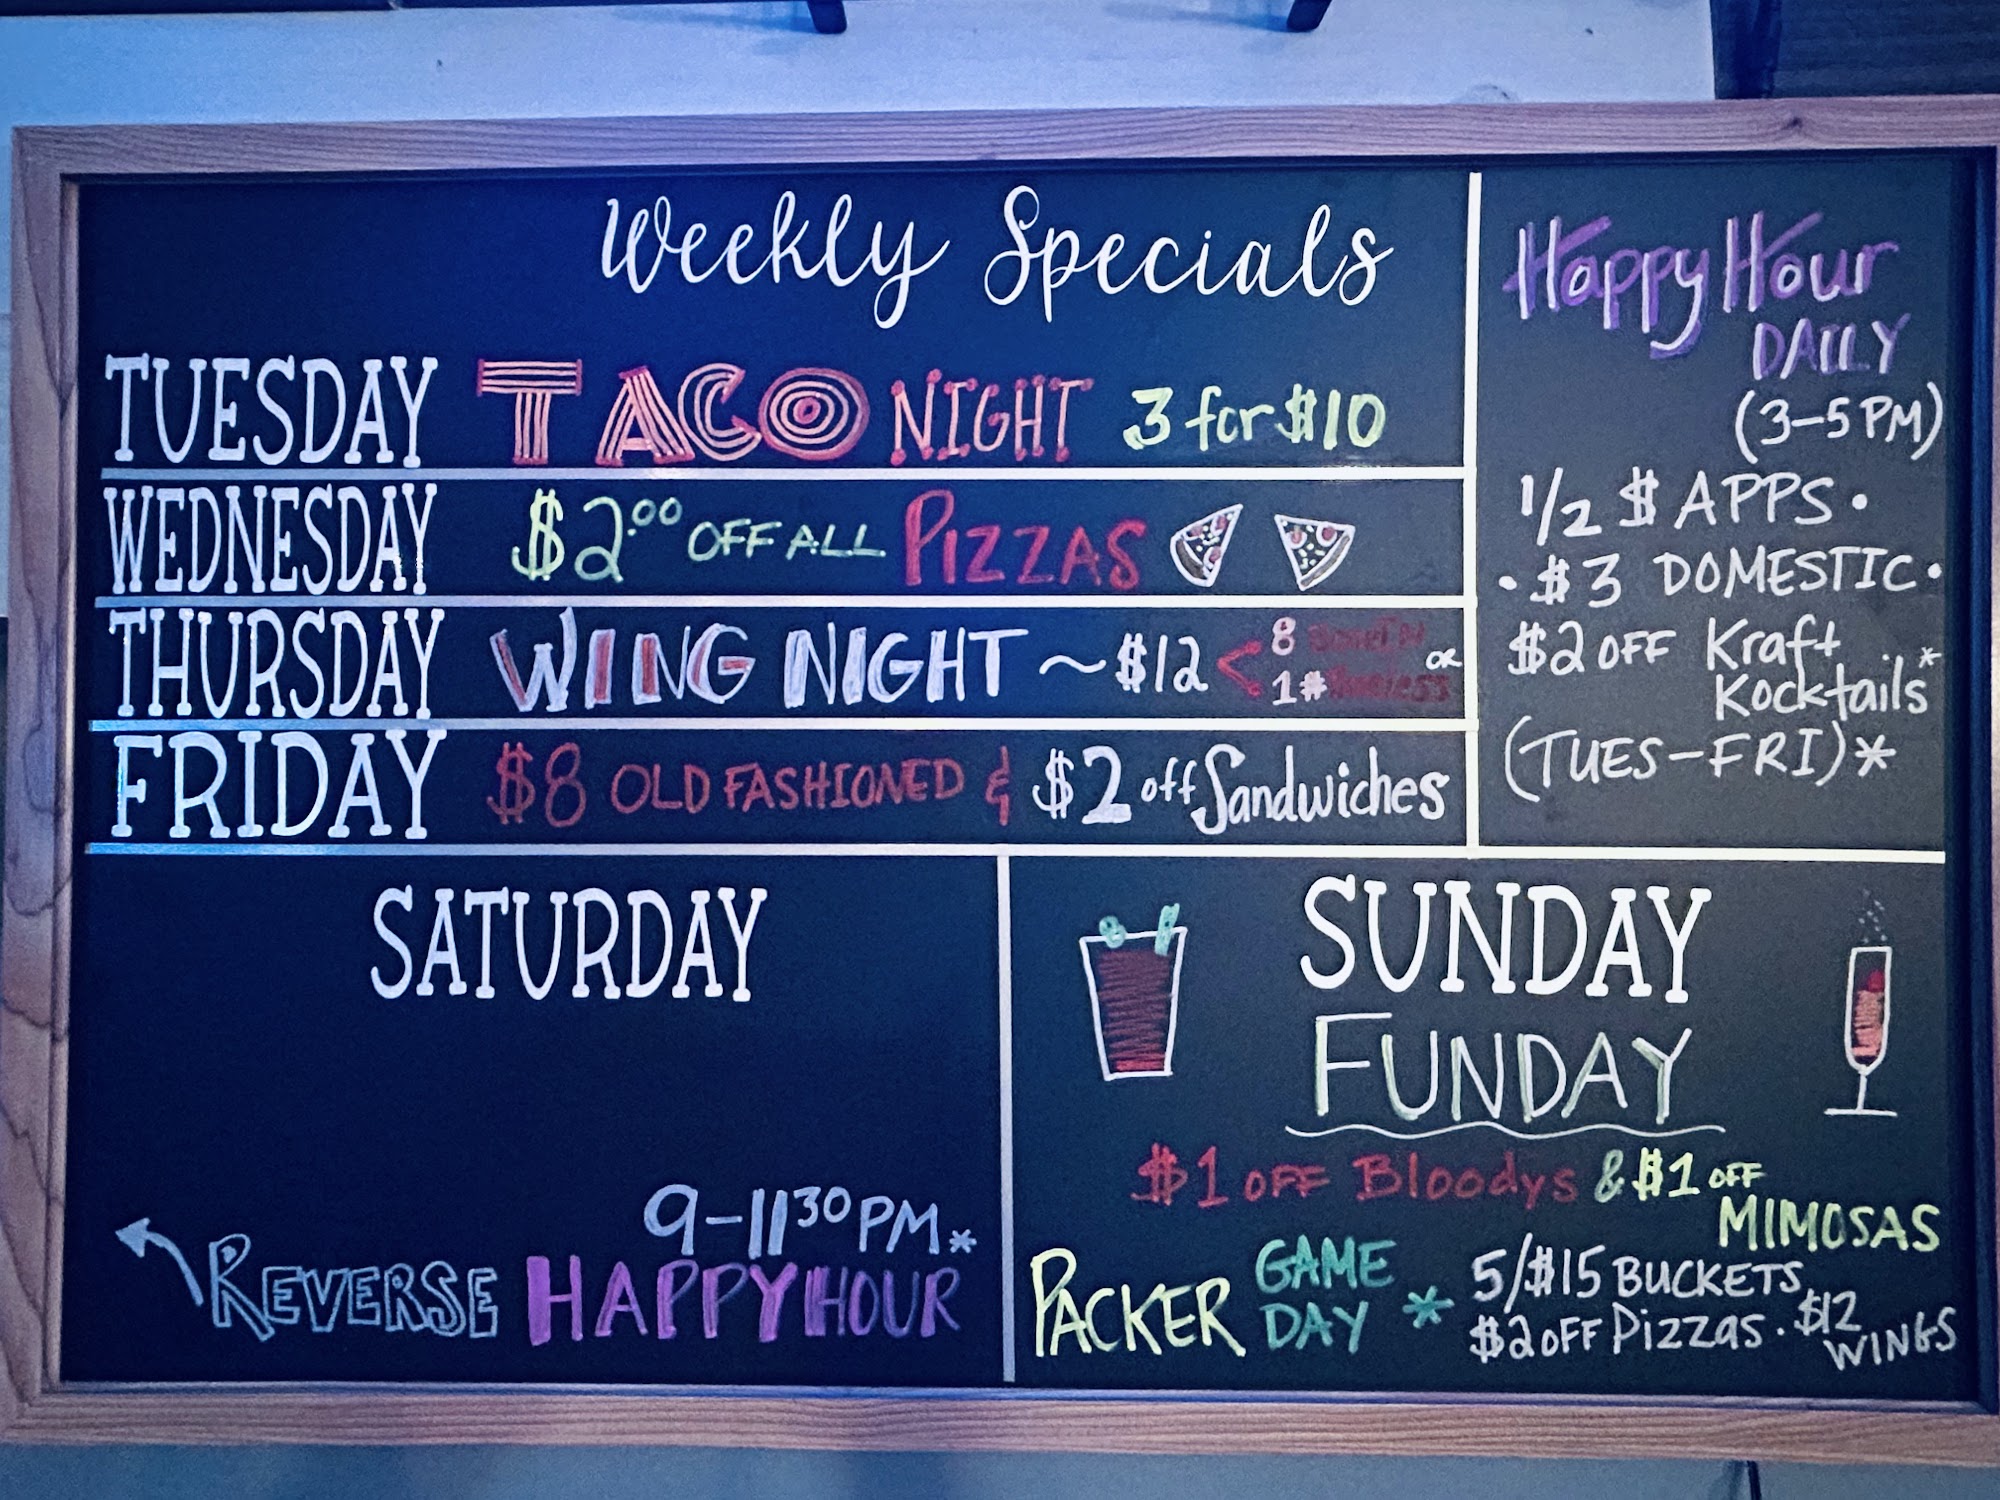 Weekly Specials
TUESDAY TACO NIGHT 3 for $10
WEDNESDAY $2.00 OFF ALL PIZZAS
THURSDAY WING NIGHT ~ $12 < 8 Bone IN or
1# Boneless
FRIDAY $8 OLD FASHIONED & $2 off Sandwiches
Happy Hour
DAILY
(3-5 PM)
1/2 $ APPS •
• $3 DOMESTIC •
$2 OFF Kraft
Kocktails *
(TUES-FRI)*
SATURDAY
9-11 30 PM *
REVERSE HAPPY HOUR
SUNDAY
FUNDAY
$1 OFF Bloodys & $1 OFF
MIMOSAS
PACKER GAME DAY * 5/$15 BUCKETS
$2 OFF Pizzas • $12 WINGS